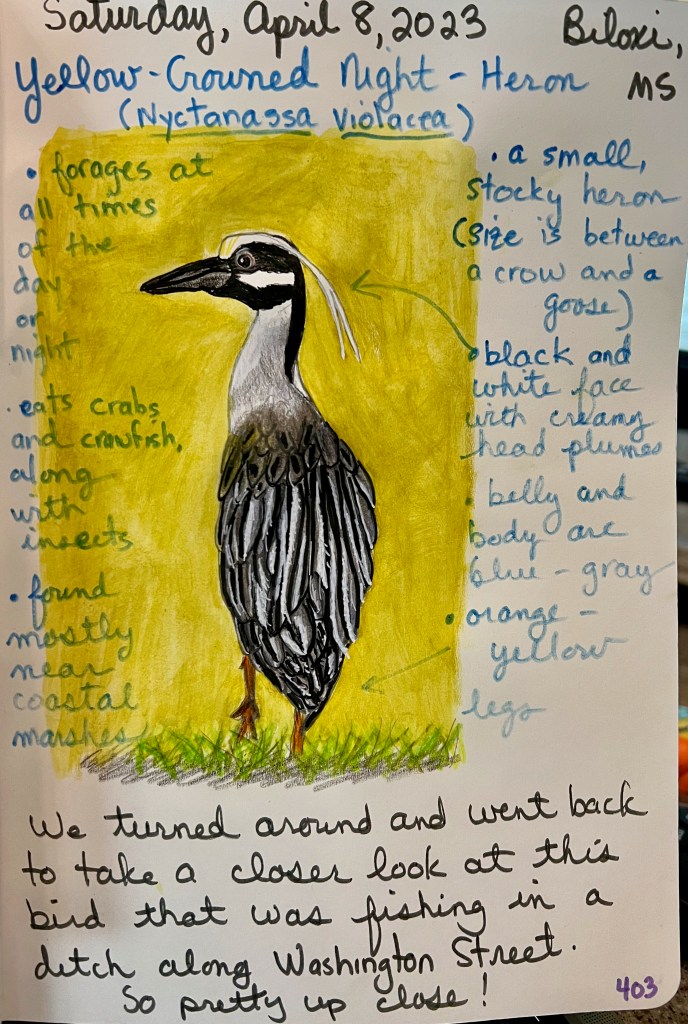 Saturday, April 8, 2023
Biloxi,
MS
Yellow-Crowned Night-Heron
(Nyctanassa violacea)
• forages at
all times
of the
day
or
night
• eats crabs
and crawfish,
along
with
insects
• found
mostly
near
coastal
marshes
• a small,
stocky heron
(size is between
a crow and a
goose)
• black and
white face
with creamy
head plumes
• belly and
body are
blue-gray
• orange-
yellow
legs
We turned around and went back
to take a closer look at this
bird that was fishing in a
ditch along Washington Street.
So pretty up close!
403